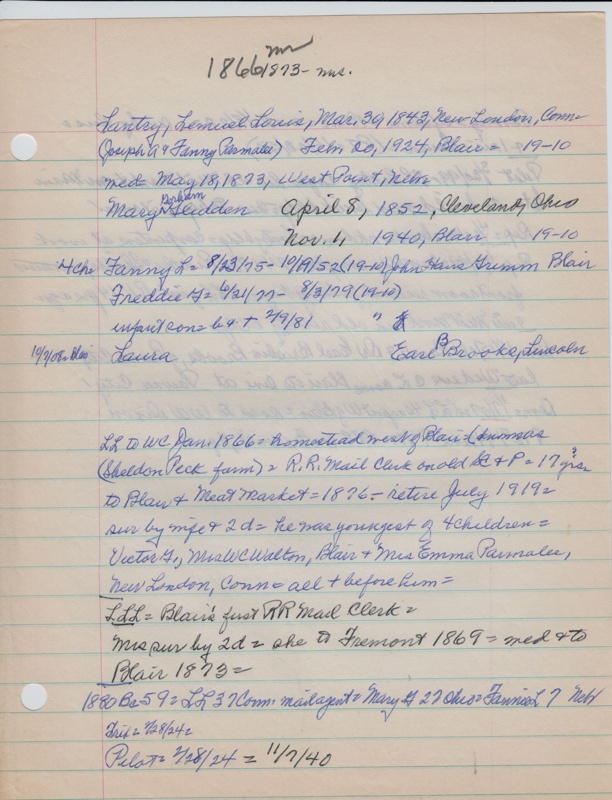 1866 mr
1873 - mrs.
Lantry, Lemuel Louis, Mar. 30, 1843, New London, Conn=
(Joseph A & Fanny Parmalee) Feb. 20, 1924, Blair = 19-10
med= May 18, 1873, West Point, Nebr
Mary Gliddon April 8, 1852, Cleveland, Ohio
Nov. 4, 1940, Blair 19-10
4 Ch= Fanny L = 8/23/75 - 10/19/52 (19-10) John Hans Grimm Blair
Freddie G = 6/21/77 - 8/3/79 (19-10)
infant son = b & + 2/9/81 "
10/7/08= Blair Laura Earl B Brooks, Lincoln
LL to WC Jan. 1866 = homestead west of Blair = (known as
(Sheldon Peck farm) = R.R. Mail Clerk on old SC & P = 17 yrs ?
to Blair & Meat Market = 1876 - retire July 1919 =
sur by wife & 2 d = he was youngest of 4 children =
Victor G., Mrs WC Walton, Blair + Mrs Emma Parmalee,
New London, Conn = all + before him =
LLL = Blair's first RR Mail Clerk =
Mrs sur by 2d = she to Fremont 1869 = med & to
Blair 1873 =
1880 Ba 59 = LL 37 Conn. mail agent = Mary G 27 Ohio = Fannie L 7 Neb/
Trib = 2/28/24 =
Pilot = 2/28/24 = 11/7/40